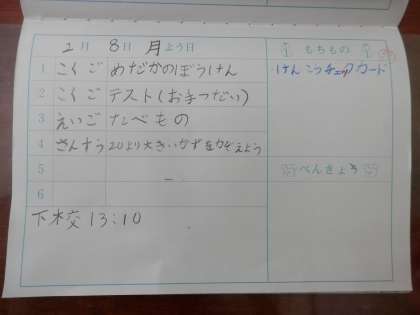 2月 8日 月よう日
1 こくご めだかのぼうけん
2 こくご テスト(おてつだい)
3 えいご たべもの
4 さんすう 20より大きいかずをかぞえよう
5
6
下校 13:10
もちもの
けんこうチェックカード
べんきょう